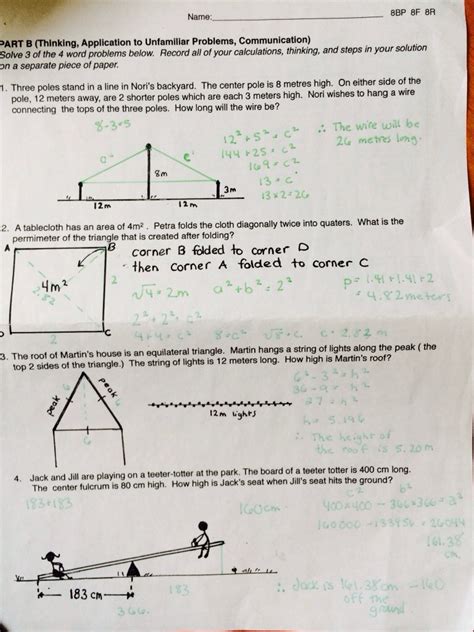 Name:
8BP 8F 8R
PART B (Thinking, Application to Unfamiliar Problems, Communication)
Solve 3 of the 4 word problems below. Record all of your calculations, thinking, and steps in your solution
on a separate piece of paper.
1. Three poles stand in a line in Nori's backyard. The center pole is 8 metres high. On either side of the
pole, 12 meters away, are 2 shorter poles which are each 3 meters high. Nori wishes to hang a wire
connecting the tops of the three poles. How long will the wire be?
8-3=5
12² + 5² = c²
144 + 25 = c²
169 = c²
13 = c
13×2=26
∴ The wire will be
26 metres long.
c
c
8m
3m
12m
12m
2. A tablecloth has an area of 4m². Petra folds the cloth diagonally twice into quaters. What is the
permimeter of the triangle that is created after folding?
A
B
corner B folded to corner D
then corner A folded to corner C
4m²
2.82
2
2
D
C
√4 = 2m
a² + b² = 2²
p = 1.41 + 1.41 + 2
= 4.82 meters
2² + 2² = c²
4+4 = c²
8=c²
√8=c
c= 2.82 m
3. The roof of Martin's house is an equilateral triangle. Martin hangs a string of lights along the peak ( the
top 2 sides of the triangle.) The string of lights is 12 meters long. How high is Martin's roof?
peak
6
peak
6
6
12m lights
6² - 3² = h²
36 - 9 = h²
27 = h²
h= 5.196
∴ The height of
the roof is 5.20m
4. Jack and Jill are playing on a teeter-totter at the park. The board of a teeter totter is 400 cm long.
The center fulcrum is 80 cm high. How high is Jack's seat when Jill's seat hits the ground?
183+183
160cm
c²
b²
400×400 - 366×366 = a²
160000 - 133956 = 26044
161.38
cm
183 cm
183
366
∴ Jack is 161.38cm
off the
ground